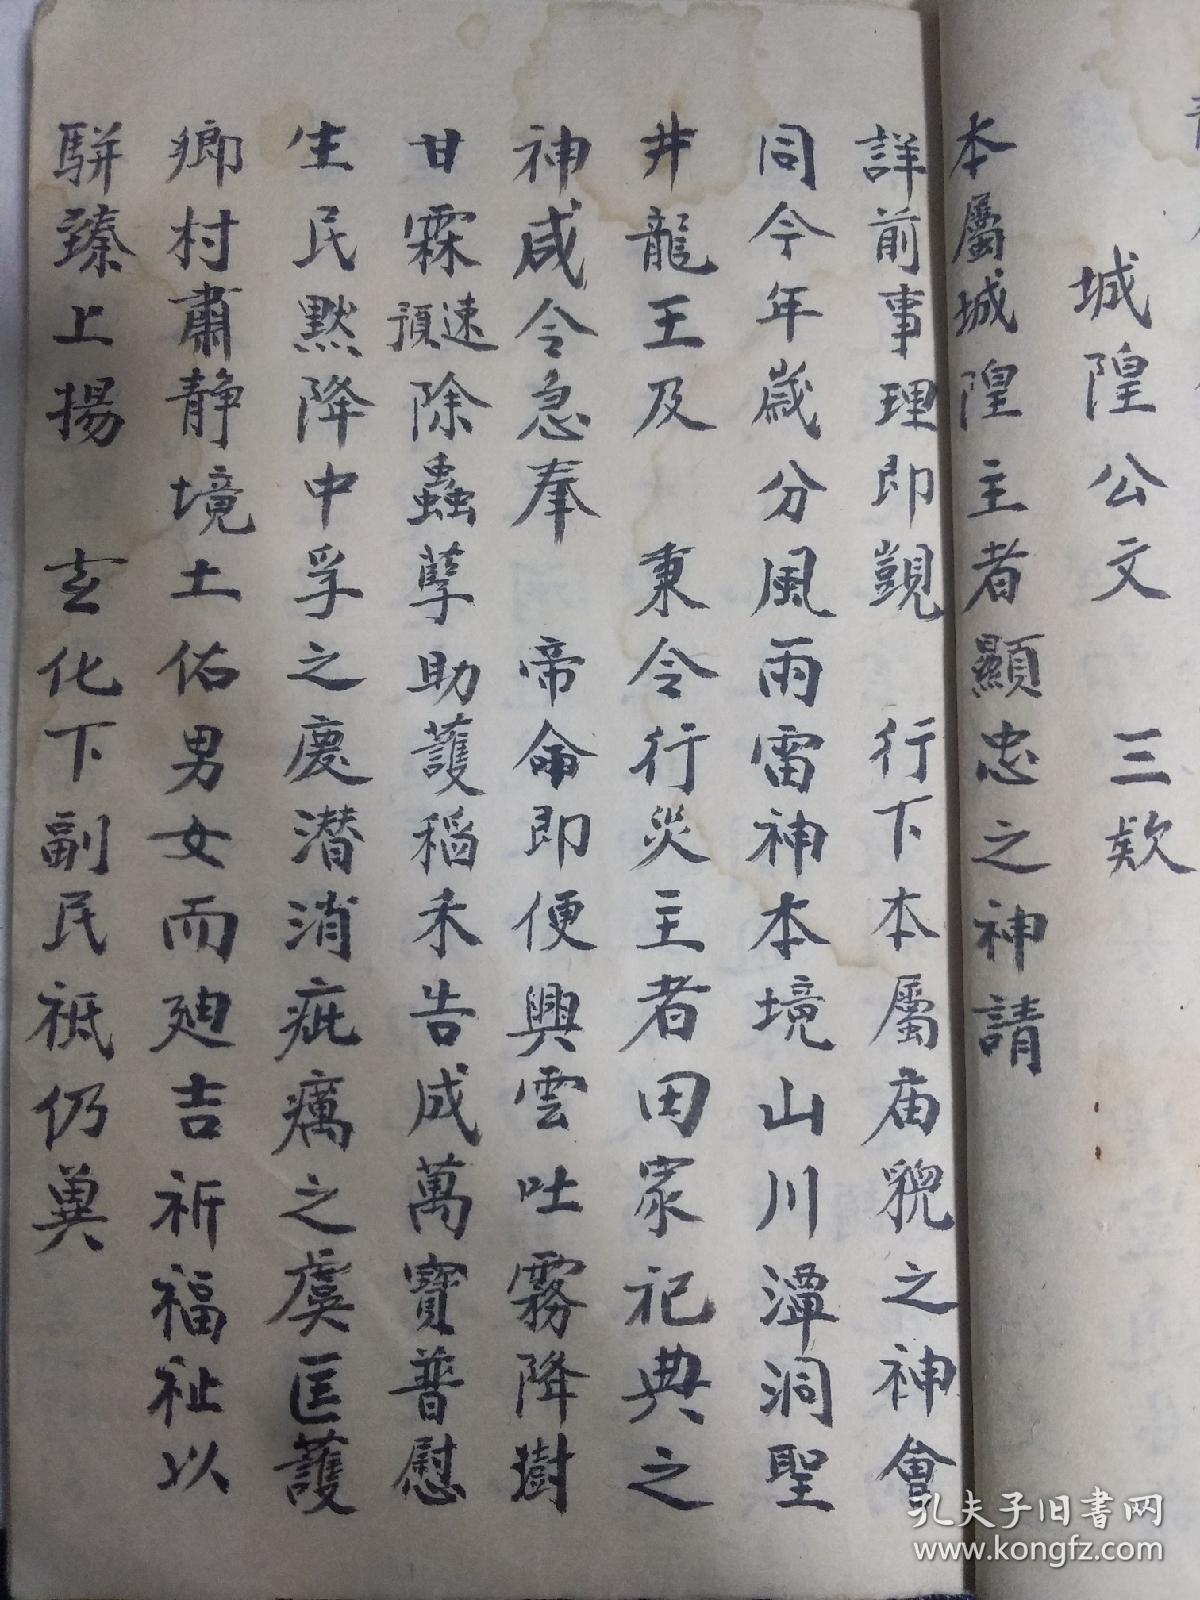 城隍公文 三欵
本屬城隍主者顯忠之神請
詳前事理即覬 行下本屬庙貌之神會
同今年歲分風雨雷神本境山川潭洞聖
井龍王及 秉令行災主者田家祀典之
神咸令急奉 帝命即便興雲吐霧降澍
甘霖預速除蟲孽助護稻禾告成萬寶普慰
生民默降中孚之慶潜消疵癘之虞匡護
鄉村肅静境土佑男女而廸吉祈福祉以
駢臻上揚 玄化下副民祗仍兾
孔夫子旧书网
www.kongfz.com